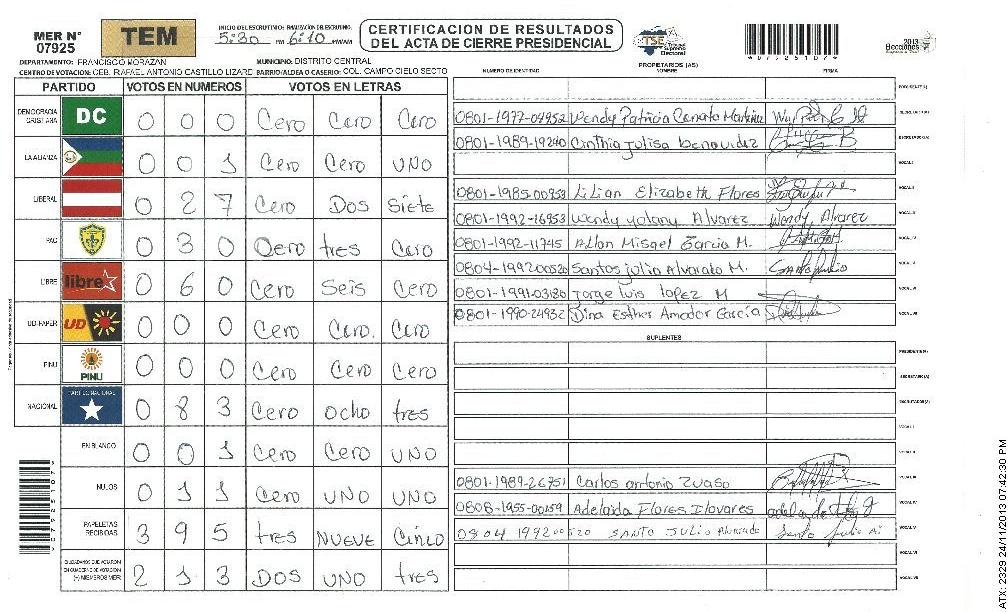 MER Nº 07925
TEM
INICIO DEL ESCRUTINIO: FINALIZACION DEL ESCRUTINIO:
5:30 PM 6:10 PM/AM
CERTIFICACION DE RESULTADOS
DEL ACTA DE CIERRE PRESIDENCIAL
TSE Tribunal Supremo Electoral
2013 Elecciones
DEPARTAMENTO: FRANCISCO MORAZAN MUNICIPIO: DISTRITO CENTRAL
CENTRO DE VOTACION: CEB. RAFAEL ANTONIO CASTILLO LIZARD BARRIO/ALDEA O CASERIO: COL. CAMPO CIELO SECTO
PARTIDO VOTOS EN NUMEROS VOTOS EN LETRAS
DEMOCRACIA CRISTIANA DC 0 0 0 Cero Cero Cero
LA ALIANZA 0 0 1 Cero Cero UNO
LIBERAL 0 2 7 Cero Dos Siete
PAC 0 3 0 Cero tres Cero
LIBRE libre 0 6 0 Cero Seis Cero
UD-FAPER UD 0 0 0 Cero Cero. Cero
PINU PINU 0 0 0 Cero Cero Cero
NACIONAL PARTIDO NACIONAL 0 8 3 Cero Ocho tres
EN BLANCO 0 0 1 Cero Cero UNO
NULOS 0 1 1 Cero UNO UNO
PAPELETAS RECIBIDAS 3 9 5 tres NUEVE Cinco
CIUDADANOS QUE VOTARON EN CUADERNO DE VOTACION (+) MIEMBROS MER 2 1 3 DOS UNO tres
PROPIETARIOS (AS)
NUMERO DE IDENTIDAD NOMBRE FIRMA
PRESIDENTE(A)
0801-1977-04952 Wendy Patricia SECRETARIO(A)
0801-1989-19240 Cinthia Julisa benavidez ESCRUTADOR(A)
VOCAL I
0801-1985-00953 Lilian Elizabeth Flores VOCAL II
0801-1992-16953 Wendy yolany Alvarez Wendy Alvarez VOCAL III
0801-1992-11745 Allan Misael Garcia M. VOCAL IV
0804-199200520 Santos julio Alvarado M. Santo Julio VOCAL V
0801-1991-03180 Jorge luis lopez M VOCAL VI
0801-1990-24932 Dina Esther Amador García VOCAL VII
SUPLENTES
PRESIDENTE(A)
SECRETARIO (A)
ESCRUTADOR(A)
VOCAL I
VOCAL II
0801-1989-26751 Carlos antonio VOCAL III
0808-1955-00159 Adelaida Flores VOCAL IV
0804 199200520 SANTO JULIO Alvarado Santo Julio A. VOCAL V
VOCAL VI
VOCAL VII
ATX: 2329 24/11/2013 07:42:30 PM